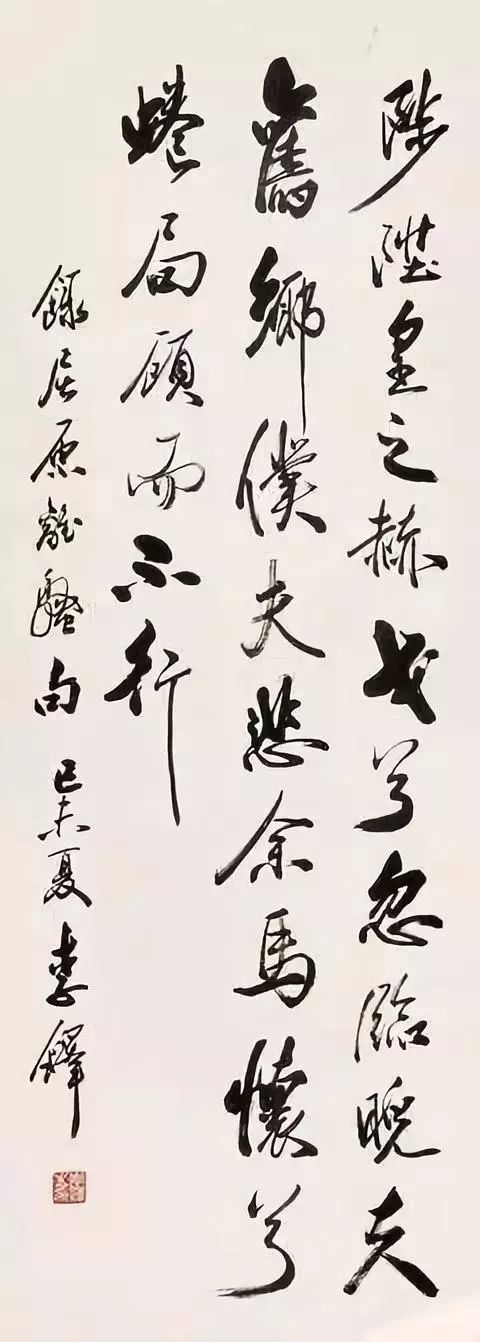 陟陞皇之赫戏兮忽臨睨夫
舊鄉僕夫悲余馬懷兮
蜷局顧而不行
錄屈原離騷句 己未夏 李鐸